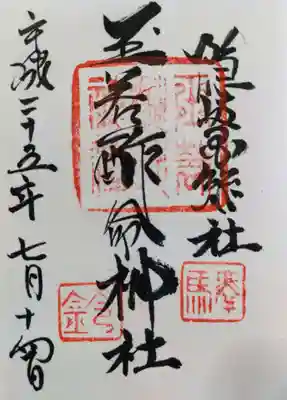 隠岐国総社
玉若酢命神社
平成二十五年七月十四日